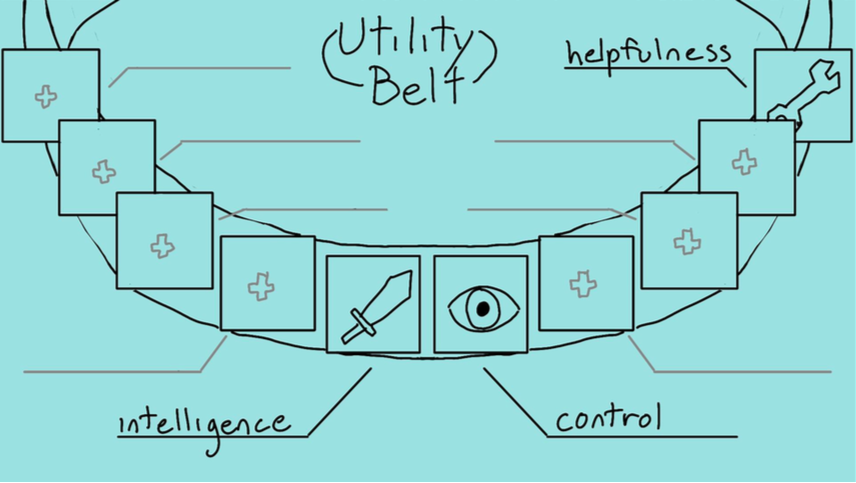 Utility
Belt
helpfulness
intelligence
control